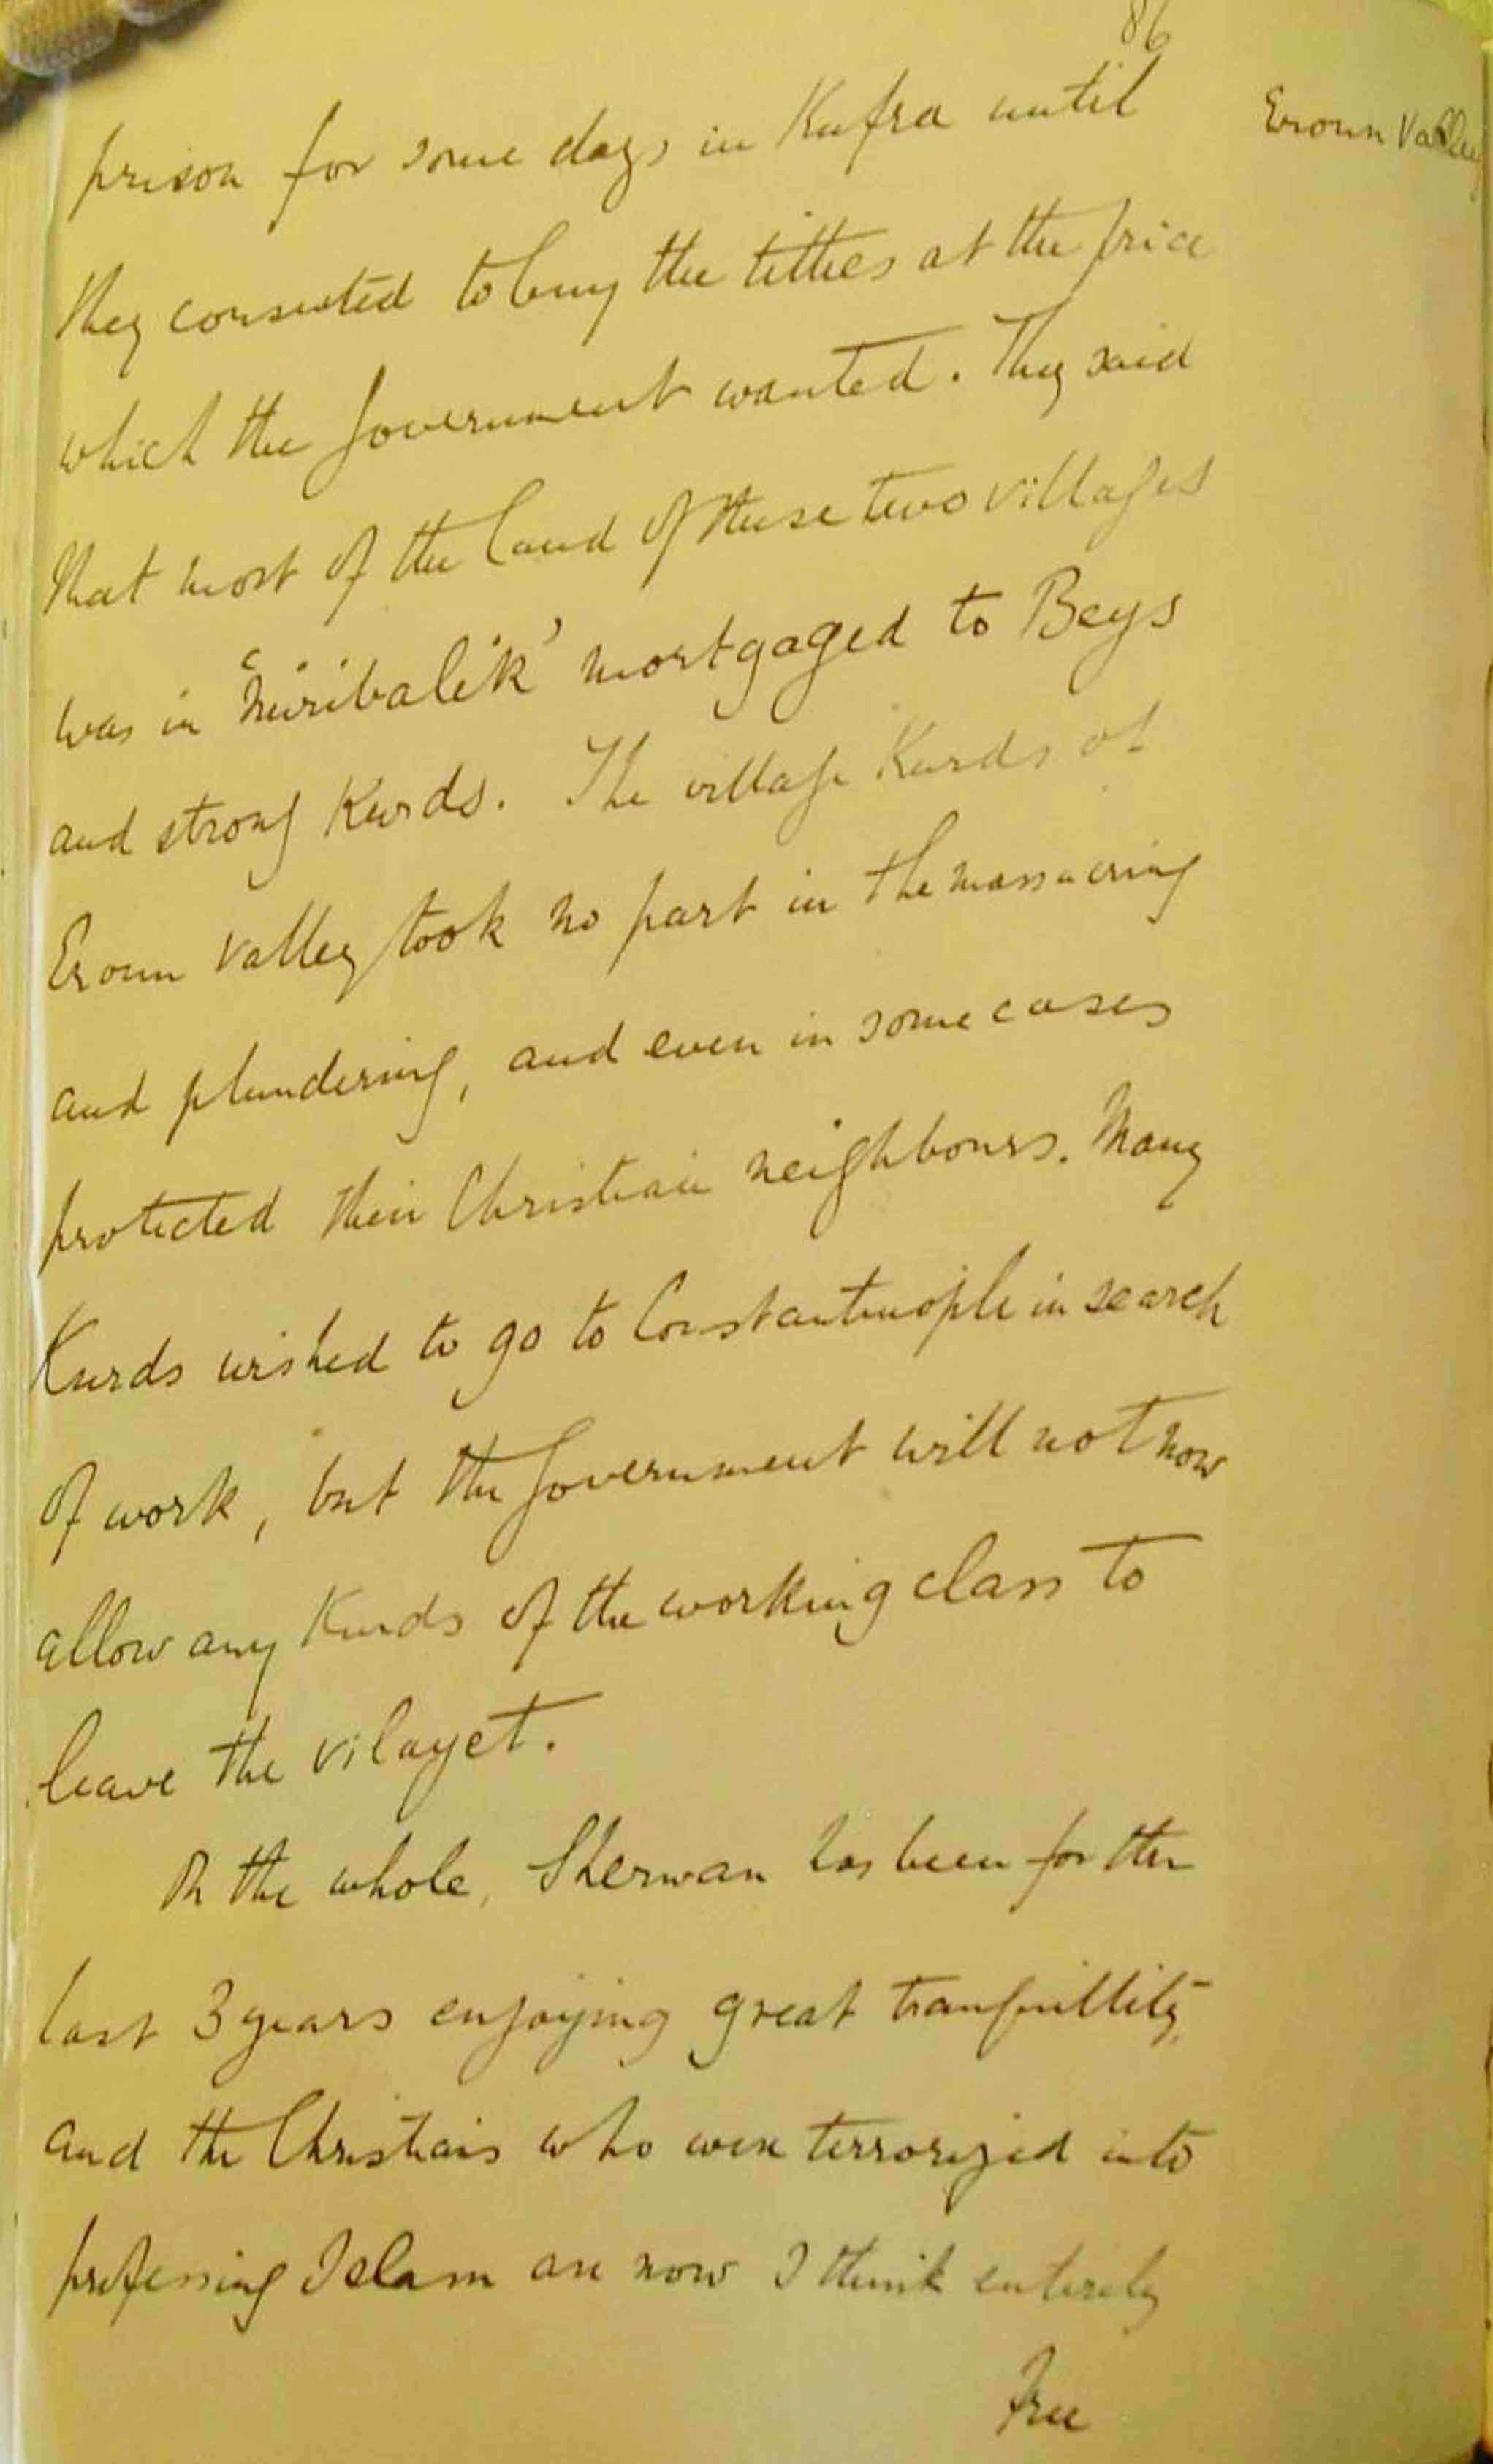 86
Eroun Valley
prison for some days in Kufra until
they consented to buy the tithes at the price
which the Government wanted. They said
that most of the land of these two villages
was in 'miribalik' mortgaged to Beys
and strong Kurds. The village Kurds of
Eroun Valley took no part in the massacring
and plundering, and even in some cases
protected their Christian neighbours. Many
Kurds wished to go to Constantinople in search
of work, but the Government will not now
allow any Kurds of the working class to
leave the vilayet.
On the whole, Sherwan has been for the
last 3 years enjoying great tranquillity,
and the Christians who were terrorized into
professing Islam are now I think entirely
free